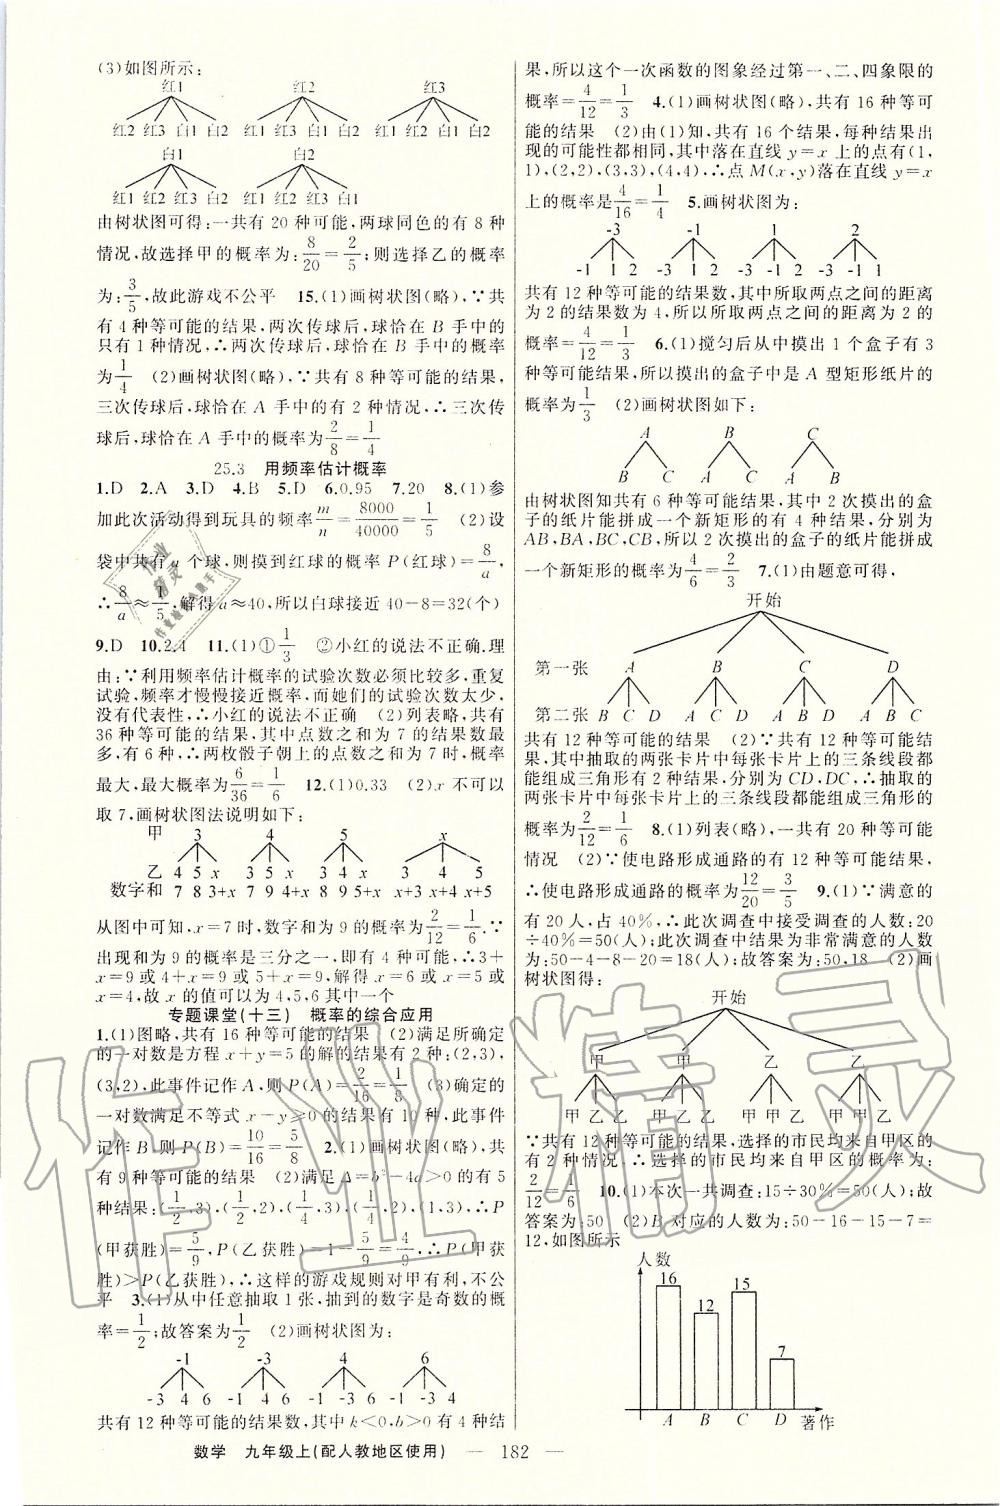 (3)如图所示:
红1 红2 红3
红2 红3 白1 白2 红1 红3 白1 白2 红1 红2 白1 白2
白1 白2
红1 红2 红3 白2 红1 红2 红3 白1
由树状图可得:一共有 20 种可能,两球同色的有 8 种
情况,故选择甲的概率为:8/20=2/5;则选择乙的概率
为:3/5,故此游戏不公平 15.(1)画树状图(略),∵共
有 4 种等可能的结果,两次传球后,球恰在 B 手中的
只有 1 种情况,∴两次传球后,球恰在 B 手中的概率
为1/4 (2)画树状图(略),∵共有 8 种等可能的结果,
三次传球后,球恰在 A 手中的有 2 种情况,∴三次传
球后,球恰在 A 手中的概率为2/8=1/4
25.3 用频率估计概率
1.D 2.A 3.D 4.B 5.D 6.0.95 7.20 8.(1)参
加此次活动得到玩具的频率m/n=8000/40000=1/5 (2)设
袋中共有 a 个球,则摸到红球的概率 P(红球)=8/a,
∴8/a≈1/5,解得 a≈40,所以白球接近 40-8=32(个)
9.D 10.2.4 11.(1)①1/3 ②小红的说法不正确.理
由:∵利用频率估计概率的试验次数必须比较多,重复
试验,频率才慢慢接近概率,而她们的试验次数太少,
没有代表性,∴小红的说法不正确 (2)列表略,共有
36 种等可能的结果,其中点数之和为 7 的结果数最
多,有 6 种,∴两枚骰子朝上的点数之和为 7 时,概率
最大,最大概率为6/36=1/6 12.(1)0.33 (2)x 不可以
取 7,画树状图法说明如下:
甲 3 4 5 x
乙 4 5 x 3 5 x 3 4 x 3 4 5
数字和 7 8 3+x 7 9 4+x 8 9 5+x x+3 x+4 x+5
从图中可知,x=7 时,数字和为 9 的概率为2/12=1/6.∵
出现和为 9 的概率是三分之一,即有 4 种可能,∴3+
x=9 或 4+x=9 或 5+x=9,解得 x=6 或 x=5 或
x=4,故 x 的值可以为 4,5,6 其中一个
专题课堂(十三) 概率的综合应用
1.(1)图略,共有 16 种等可能的结果 (2)满足所确定
的一对数是方程 x+y=5 的解的结果有 2 种:(2,3),
(3,2),此事件记作 A,则 P(A)=2/16=1/8 (3)确定的
一对数满足不等式 x-y≥0的结果有 10 种,此事件
记作 B,则 P(B)=10/16=5/8 2.(1)画树状图(略),共
有 9 种等可能的结果 (2)满足 Δ=b²-4a>0 的有 5
种结果:(1/2,3),(1/2,2),(1/4,3),(1/4,2),(1,3),∴P
(甲获胜)=5/9,P(乙获胜)=1-5/9=4/9,∴P(甲获
胜)>P(乙获胜),∴这样的游戏规则对甲有利,不公
平 3.(1)从中任意抽取 1 张,抽到的数字是奇数的概
率=1/2;故答案为1/2 (2)画树状图为:
-1 -3 4 6
-3 4 6 -1 4 6 -1 -3 6 -1 -3 4
共有 12 种等可能的结果数,其中 k<0,b>0 有 4 种结
果,所以这个一次函数的图象经过第一、二、四象限的
概率=4/12=1/3 4.(1)画树状图(略),共有 16 种等可
能的结果 (2)由(1)知,共有 16 个结果,每种结果出
现的可能性都相同,其中落在直线 y=x 上的点有(1,
1),(2,2),(3,3),(4,4),∴点 M(x,y)落在直线 y=x
上的概率是4/16=1/4 5.画树状图为:
-3 -1 1 2
-1 1 2 -3 1 2 -3 -1 2 -3 -1 1
共有 12 种等可能的结果数,其中所取两点之间的距离
为 2 的结果数为 4,所以所取两点之间的距离为 2 的
概率=4/12=1/3 6.(1)搅匀后从中摸出 1 个盒子有 3
种等可能结果,所以摸出的盒子中是 A 型矩形纸片的
概率为1/3 (2)画树状图如下:
A B C
B C A C A B
由树状图知共有 6 种等可能结果,其中 2 次摸出的盒
子的纸片能拼成一个新矩形的有 4 种结果,分别为
AB,BA,BC,CB,所以 2 次摸出的盒子的纸片能拼成
一个新矩形的概率为4/6=2/3 7.(1)由题意可得,
开始
第一张 A B C D
第二张 B C D A C D A B D A B C
共有 12 种等可能的结果 (2)∵共有 12 种等可能结
果,其中抽取的两张卡片中每张卡片上的三条线段都
能组成三角形有 2 种结果,分别为 CD,DC,∴抽取的
两张卡片中每张卡片上的三条线段都能组成三角形的
概率为2/12=1/6 8.(1)列表(略),一共有 20 种等可能
情况 (2)∵使电路形成通路的有 12 种等可能结果,
∴使电路形成通路的概率为12/20=3/5 9.(1)∵满意的
有 20 人,占 40%,∴此次调查中接受调查的人数:20
÷40%=50(人);此次调查中结果为非常满意的人数
为:50-4-8-20=18(人);故答案为:50,18 (2)画
树状图得:
开始
甲 甲 乙 乙
甲 乙 乙 甲 乙 乙 甲 甲 乙 甲 甲 乙
∵共有 12 种等可能的结果,选择的市民均来自甲区的
有 2 种情况,∴选择的市民均来自甲区的概率为:
2/12=1/6 10.(1)本次一共调查:15÷30%=50(人);故
答案为:50 (2)B 对应的人数为:50-16-15-7=
12,如图所示
人数
16 12 15 7
A B C D 著作
数学 九年级上(配人教地区使用) — 182 —
作业精灵